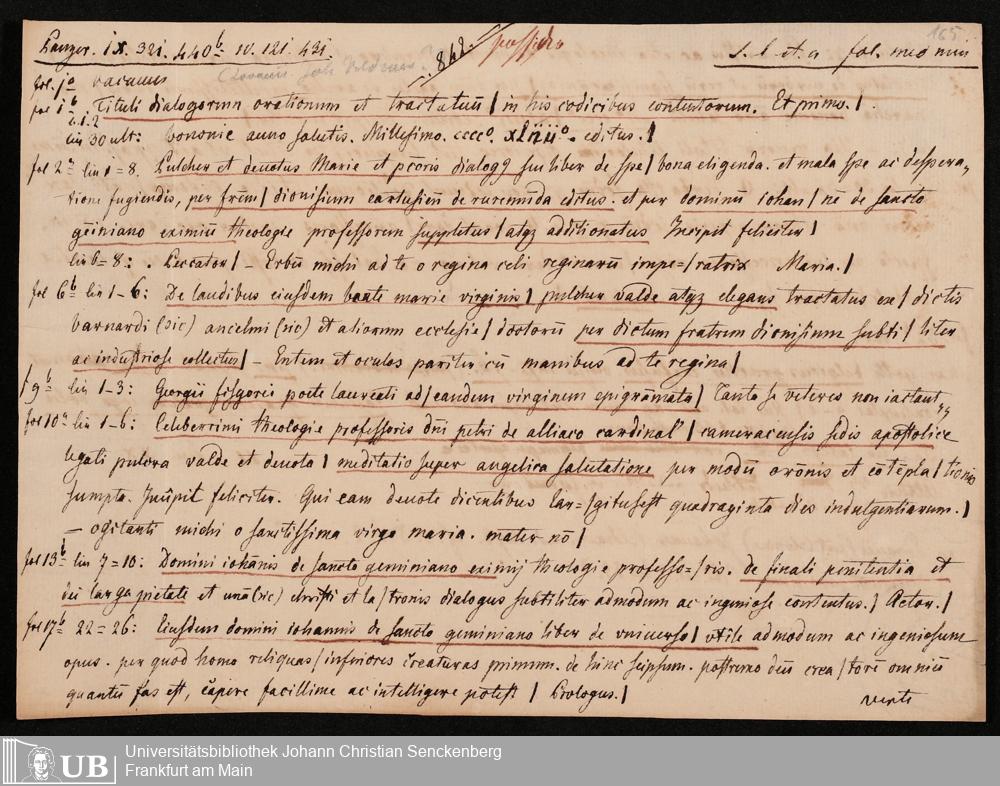 Panzer. ix. 321. 440b. IV. 121. 431 848. possid. s. l. et. a fol. med min 165
fol. ja vacauus
fol ib Tituli dialogorum orationum et tractatuū | in his codicibus contentorum. Et primo. |
c. 1. 2
lin 30 ult: bononie anno salutis. Millesimo. cccco. editus. |
fol 2a lin 1=8. Pulcher et deuotus Marie et pc̄oris dialogꝰ siu liber de spe | bona eligenda. et mala spe ac despera-
tione fugiendis, per frēm | dionisium cartusieū de ruremūda editus. et per dominū iohan | nē de sancto
geīniano eximiū theologie professorem suppletus | atqꝫ additionatus Incipit feliciter |
lin 6=8: . Peccator | – Erbū michi ad te o regina celi reginarū impe= | ratrix Maria. |
fol 6b lin 1–6: De laudibus eiusdem beate marie virginis | pulcher valde atqꝫ elegans tractatus ex | dictis
barnardi (sic) ancelmi (sic) et aliorum ecclesie | doctorū per dictum fratrem dionisium subti | liter
ac industriose collectus | – Entem et oculos pariter cū manibus ad te regina |
f 9b lin 1–3: Georgii fisgorei poete laureati ad | eandem virginem epigrāmata | Tanta se veteres non iactant,
fol 10a lin 1–6: Celeberrimi theologie professoris dn̄i petri de alliaco cardinal' | cameracensis sedis apostolice
legati pulcra valde et deuota | meditatio super angelica salutatione per modū orōnis et cōtēpla | tiōnis
sumpta. Incipit feliciter. Qui eam deuote dicentibus lar= | gitus est quadraginta dies indulgentiarum. |
– ogitanti michi o sanctissima virgo maria. mater nō |
fol 13b lin 7=10: Domini iohānis de sancto geminiano eximij theologie professo= | ris. de finali penitentia et
dei larga pietate et unā (sic) christi et la | tronis dialogus subtiliter admodum ac ingeniose contentus. | Actor. |
fol 17b 22=26: Eiusdem domini iohannis de sancto geminiano liber de vniuerso | vtile admodum ac ingeniosum
opus. per quod homo reliquas | infriores creaturas primum. de hinc seipsum. postremo deū crea | torē omniū
quantū fas est, cāpere facillime ac intelligere potest | Prologus. |
verte
UB Universitätsbibliothek Johann Christian Senckenberg
Frankfurt am Main